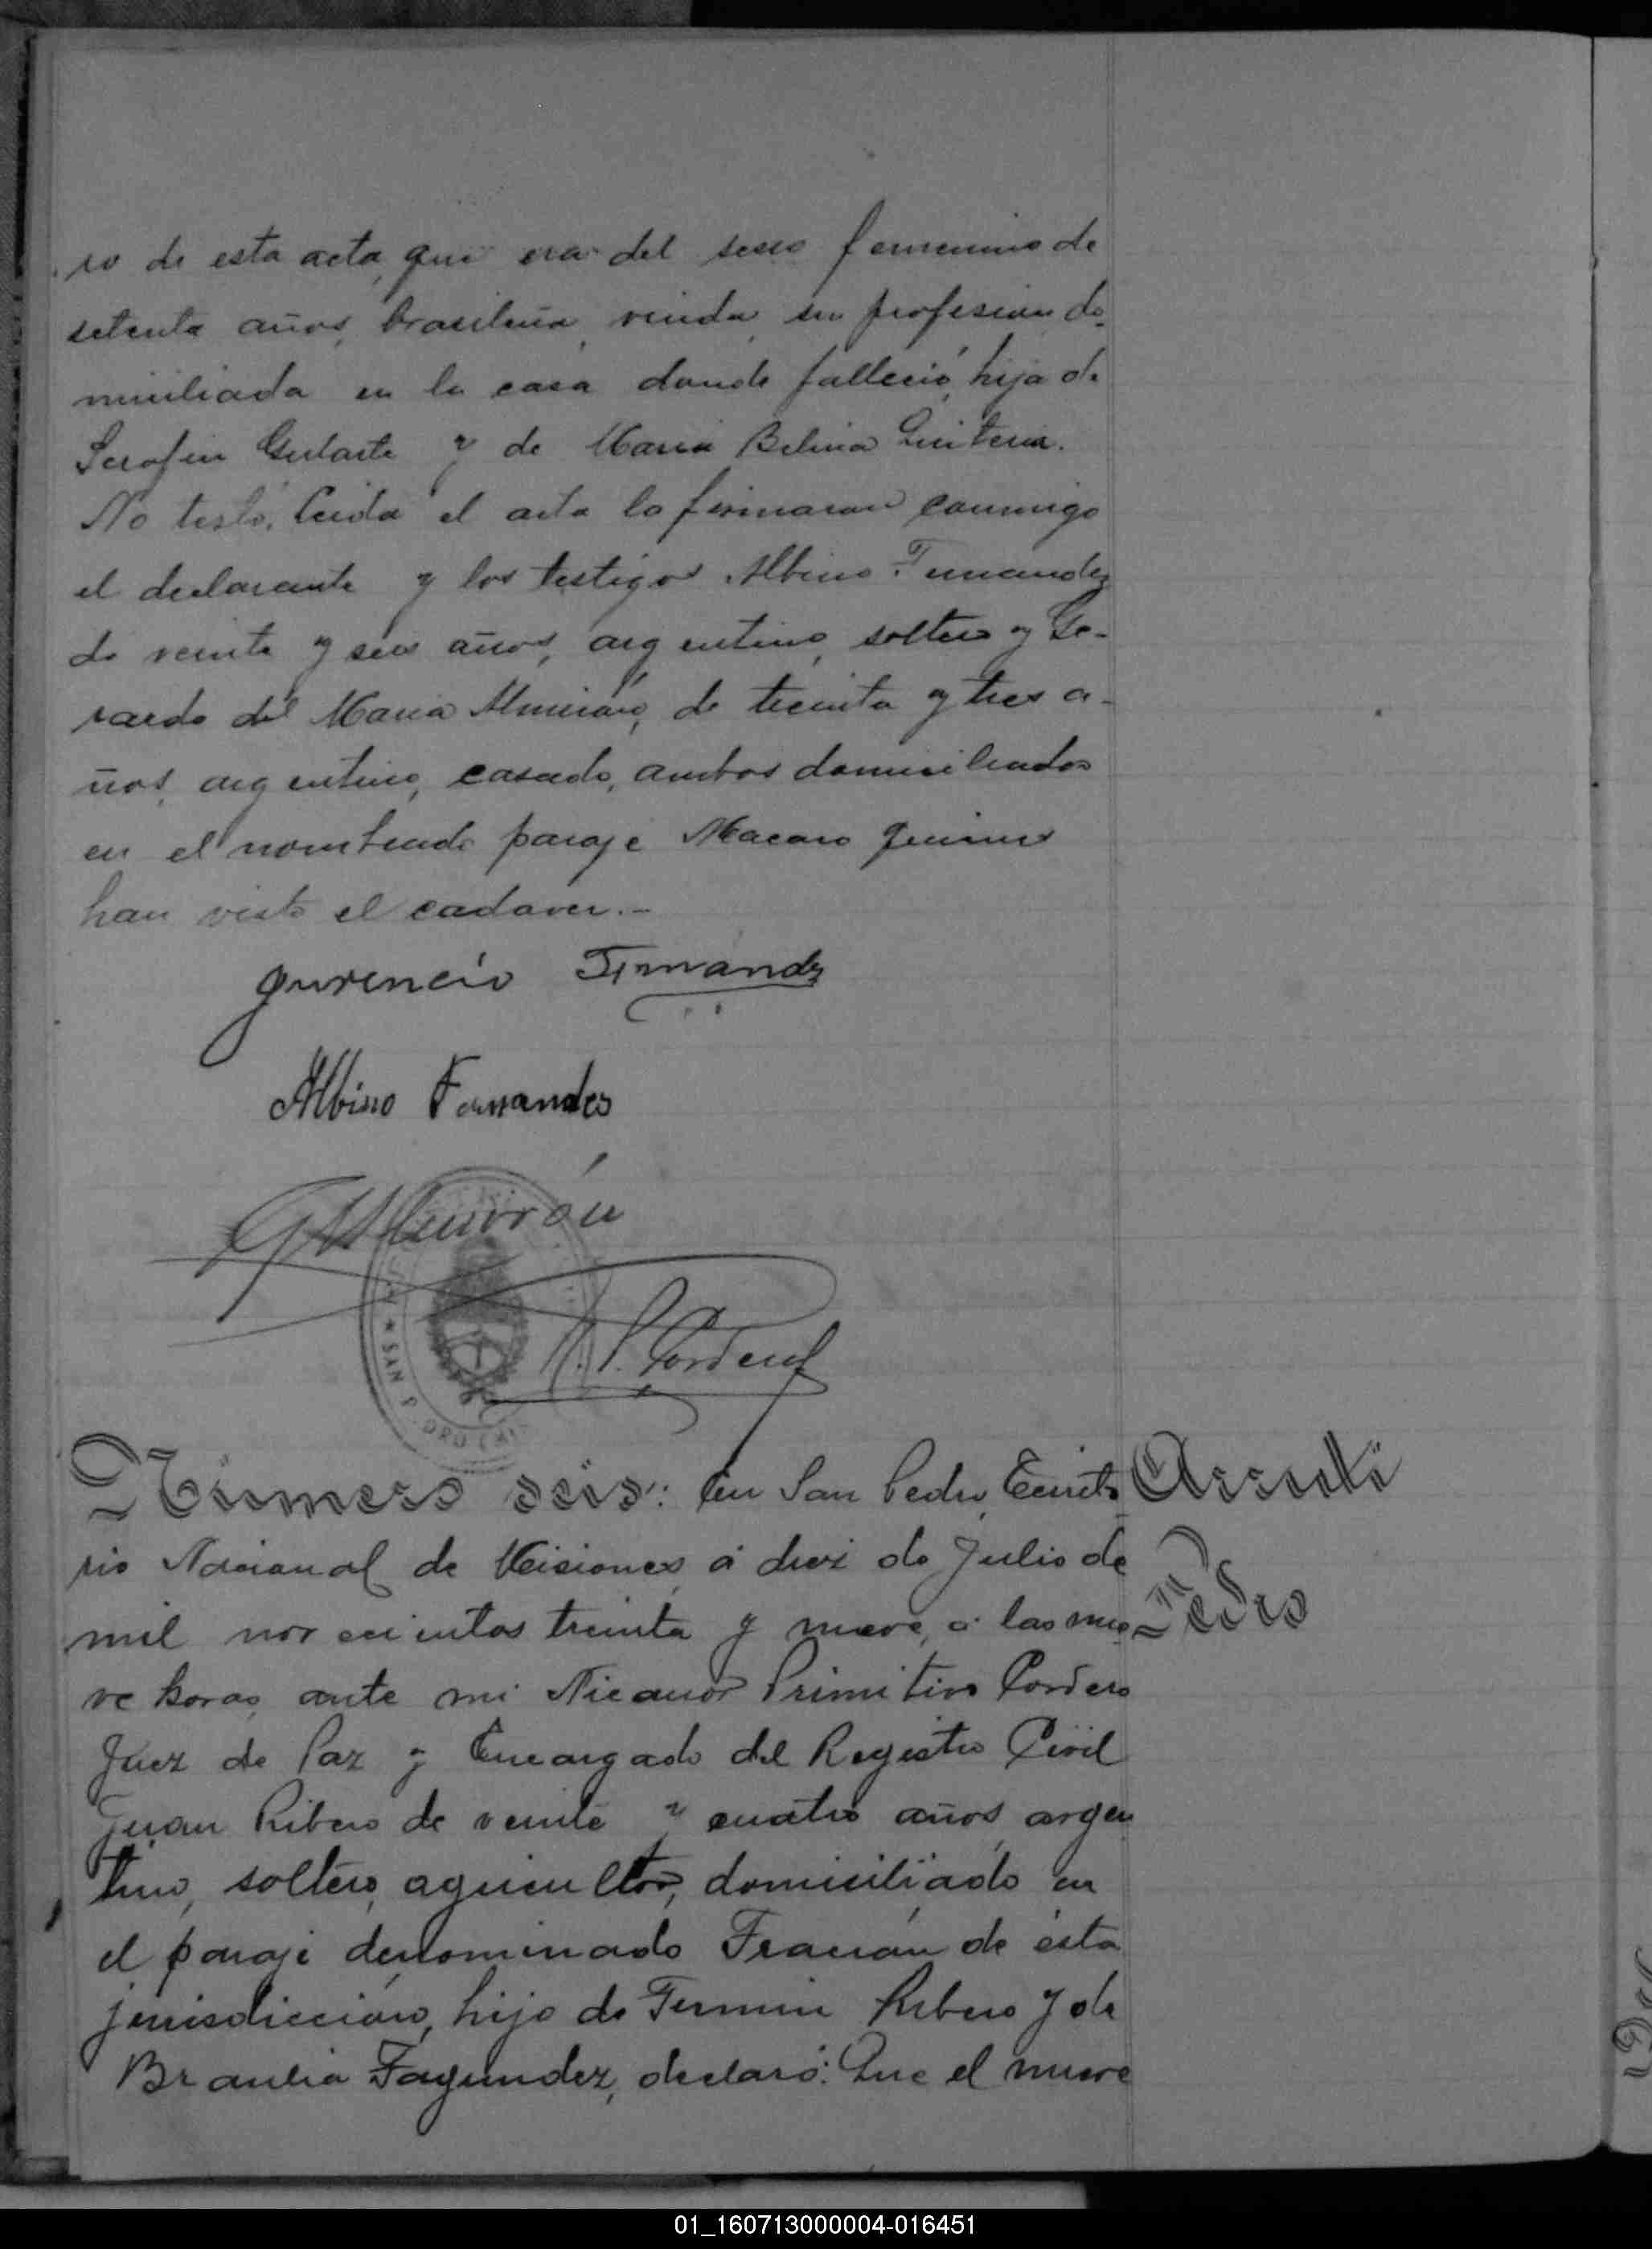 ro de esta acta, que era del sexo femenino de
setenta años, brasileña, viuda, sin profesion do-
miciliada en la casa donde falleció, hija de
Serafin Gularte y de Maria Belina Quiteria.
No testó. Leida el acta la firmaron conmigo
el declarante y los testigos Albino Fernandez
de veinte y seis años, argentino, soltero y Ge-
rardo del Maria Almirón, de treinta y tres a-
ños, argentino, casado, ambos domiciliados
en el nombrado paraje Macaco quienes
han visto el cadaver.-
Fernandz
Albino Fernandes
GMAlmirón
SAN P DRO
N. P. Cordero
Número seis: En San Pedro, Territo
rio Nacional de Misiones, á diez de Julio de
mil novecientos treinta y nueve, á las nue
ve horas, ante mi Nicanor Primitivo Cordero
Juez de Paz y Encargado del Registro Civil
Juan Ribero de veinte y cuatro años, argen
tino, soltero, agricultor, domiciliado en
el paraje denominado Fracrán de ésta
jurisdicción, hijo de Fermin Ribero y de
Braulia Fagundez, declaró: Que el nueve
Pedro
01_160713000004-016451